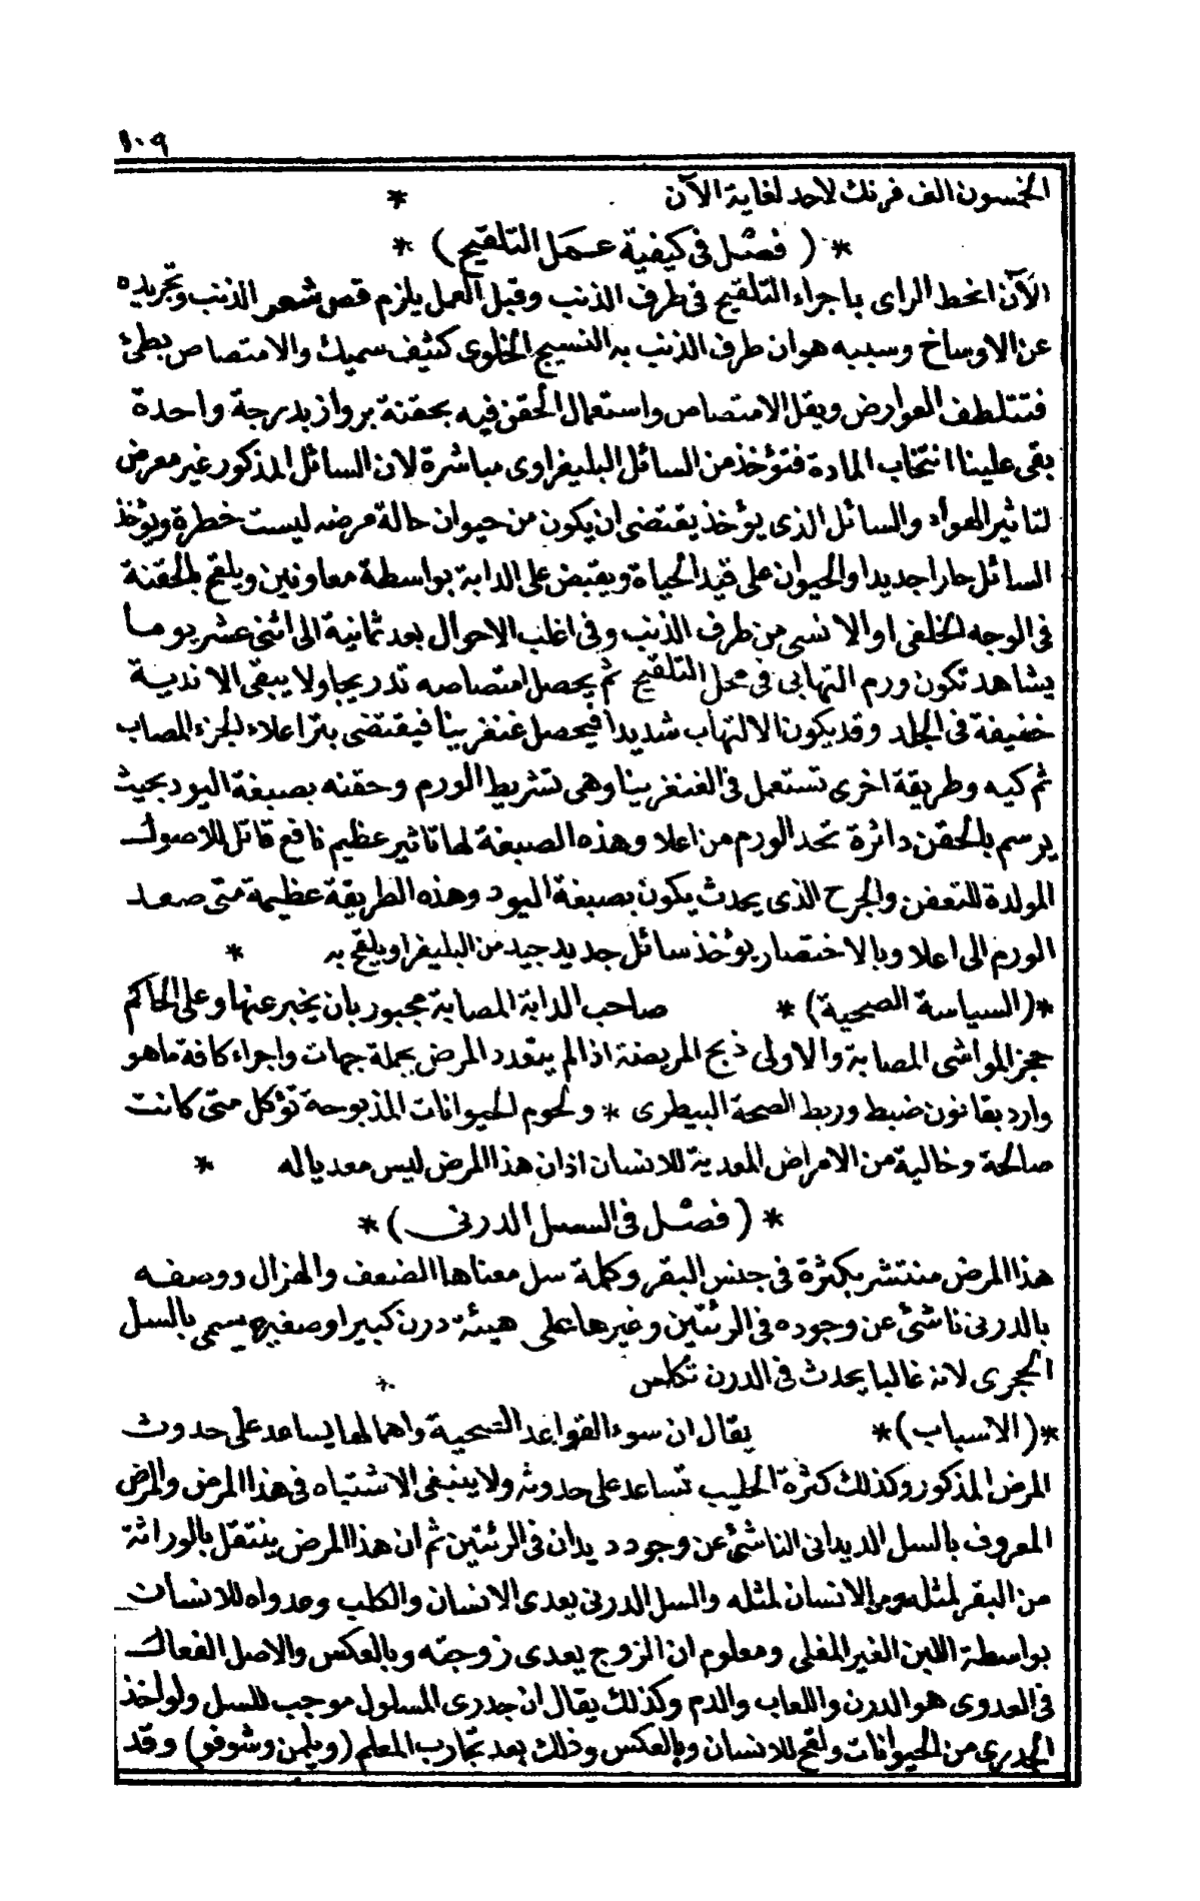 ١٠٩
الخمسون الف فرنك لاحد لغاية الآن *
* ( فصل فى كيفية عمل التلقيح ) *
الآن انحط الراى باجراء التلقيح فى طرف الذنب وقبل العمل يلزم قص شعر الذنب وتجريده
عن الاوساخ وسببه هو ان طرف الذنب به النسيج الخلوى كثيف سميك والامتصاص بطئ
فتتلطف العوارض ويقل الامتصاص واستعمال الحقن فيه بحقنة برواز بدرجة واحدة
بقى علينا انتخاب المادة فتؤخذ من السائل البليفراوى مباشرة لان السائل المذكور غير معرض
لتاثير الهواء والسائل الذى يؤخذ يقتضى ان يكون من حيوان حالة مرضه ليست خطرة ويؤخذ
السائل حارا جديدا والحيوان على قيد الحياة ويقبض على الدابة بواسطة معاونين ويلقح بالحقنة
فى الوجه الخلفى او الانسى من طرف الذنب وفى اغلب الاحوال بعد ثمانية الى اثنى عشر يوما
يشاهد تكون ورم التهابى فى محل التلقيح ثم يحصل امتصاصه تدريجا ولا يبقى الا ندبة
خفيفة فى الجلد وقد يكون الالتهاب شديدا فيحصل غنغرينا فيقتضى بتر اعلاء الجزء المصاب
ثم كيه وطريقة اخرى تستعمل فى الغنغرينا وهى تشريط الورم وحقنه بصبغة اليود بحيث
يرسم بالحقن دائرة تحد الورم من اعلا وهذه الصبغة لها تاثير عظيم نافع قاتل للاصول
المولدة للتعفن والجرح الذى يحدث يكون بصبغة اليود وهذه الطريقة عظيمة متى صعد
الورم الى اعلا وبالاختصار يؤخذ سائل جديد جيد من البليفرا ويلقح به *
*( السياسة الصحية ) * صاحب الدابة المصابة مجبور بان يخبر عنها وعلى الحاكم
حجز المواشى المصابة والاولى ذبح المريضة اذا لم يتعدد المرض بجملة جهات واجراء كافة ما هو
وارد بقانون ضبط وربط الصحة البيطرى * ولحوم الحيوانات المذبوحة تؤكل متى كانت
صالحة وخالية من الامراض المعدية للانسان اذ ان هذا المرض ليس معديا له *
* ( فصل فى السل الدرنى ) *
هذا المرض منتشر بكثرة فى جنس البقر وكلمة سل معناها الضعف والهزال ووصفه
بالدرنى ناشئ عن وجوده فى الرئتين وغيرها على هيئة درن كبير او صغير ويسمى بالسل
الحجرى لانه غالبا يحدث فى الدرن تكلس *
*( الاسباب ) * يقال ان سوء القواعد الصحية واهمالها يساعد على حدوث
المرض المذكور وكذلك كثرة الحليب تساعد على حدوثه ولا ينبغى الاشتباه فى هذا المرض والمرض
المعروف بالسل الديدانى الناشئ عن وجود ديدان فى الرئتين ثم ان هذا المرض ينتقل بالوراثة
من البقر لمثله ومن الانسان لمثله والسل الدرنى يعدى الانسان والكلب وعدواه للانسان
بواسطة اللبن الغير المغلى ومعلوم ان الزوج يعدى زوجته وبالعكس والاصل الفعال
فى العدوى هو الدرن واللعاب والدم وكذلك يقال ان جدرى المسلول موجب للسل ولو اخذ
الجدرى من الحيوانات ولقح للانسان وبالعكس وذلك بعد تجارب المعلم (ويلمن وشوفو) وقد